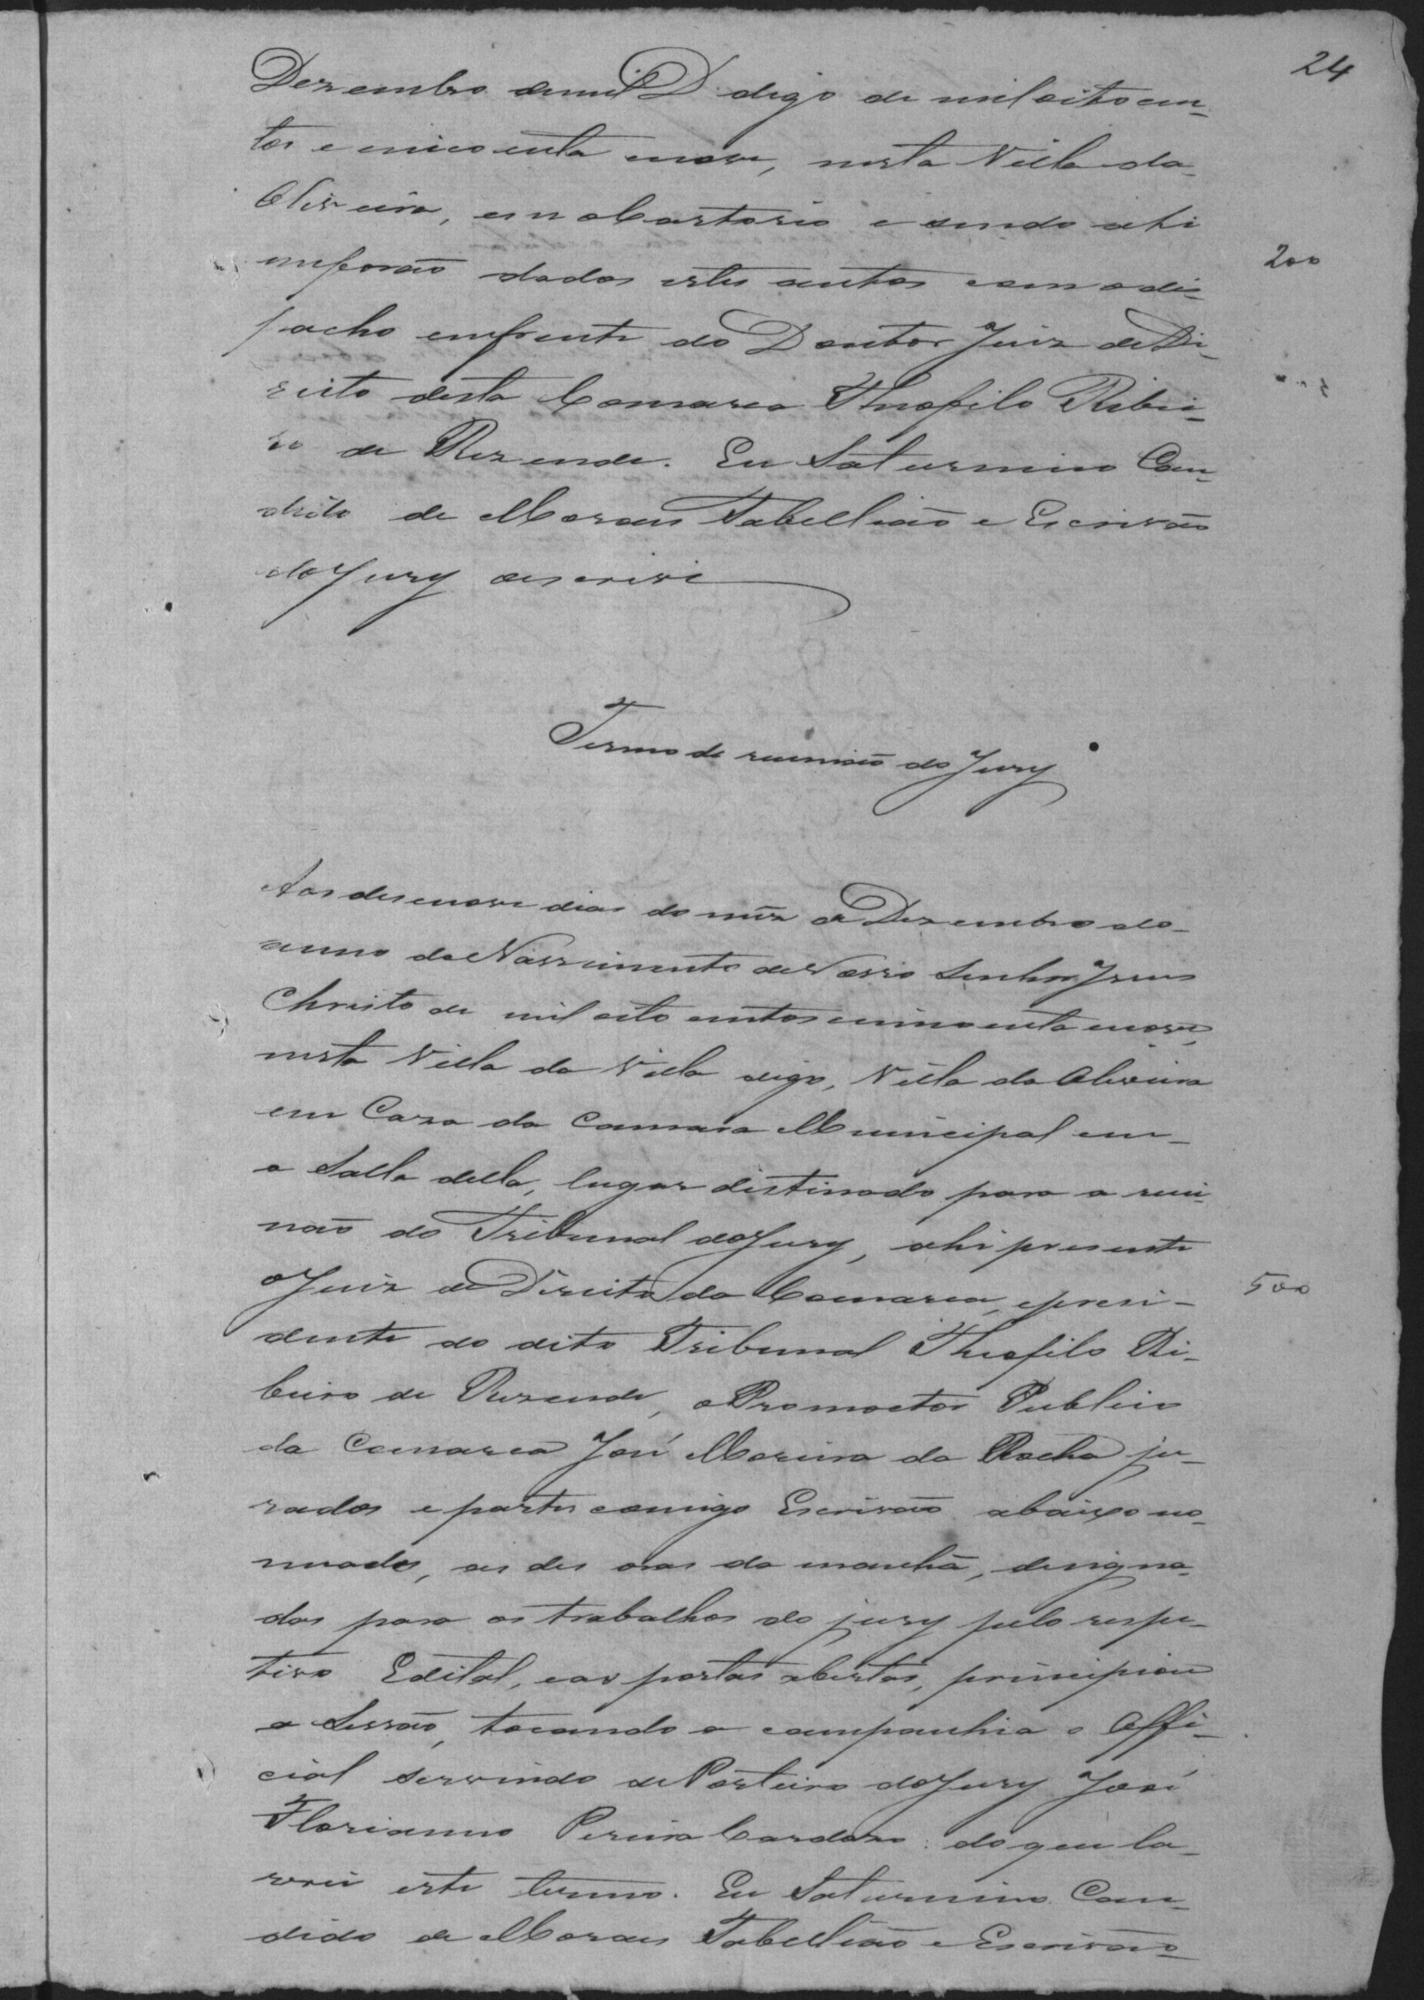 24
Dezembro demil D. digo de mil oitocen-
tos e cincoenta enove, nesta Villa da
Oliveira, em o Cartorio e sendo ahi
200
meforaõ dados estes autos com o dis-
pacho enfrente do Doutor Juiz de Di-
reito desta Comarca Theofilo Ribei-
ro de Rezende. Eu Saturnino Can-
dido de Moraes Tabelliaõ e Escrivaõ
do Jury oescrivi
Termo de reuniaõ do Jury
Aos desenove dias do mez de Dezembro do
anno do Nascimento de Nosso Senhor Jesus
Christo de mil oito centos cincoenta enove,
nesta Villa da Villa digo, Villa da Oliveira
em Caza da Camara Municipal em
a Salla della, lugar distinado para a reu-
niaõ do Tribunal do Jury, ahi presente
o Juiz de Direito da Comarca, epresi-
500
dente do dito Tribunal Theofilo Ri-
beiro de Rezende, o Promoctor Publico
da Comarca José Moreira da Rocha ju-
rados e partes comigo Escrivaõ abaixo no-
meado, as des oras da manhã, designa-
das para os trabalhos do jury pelo respe-
tivo Edital, eas portas abertas, principiou
a Sessaõ, tocando a campanhia o Offi-
cial servindo de Porteiro do Jury José
Florianno Pereira Cardozo: do que la-
vrei este termo. Eu Saturnino Can-
dido de Moraes Tabelliaõ e Escrivaõ